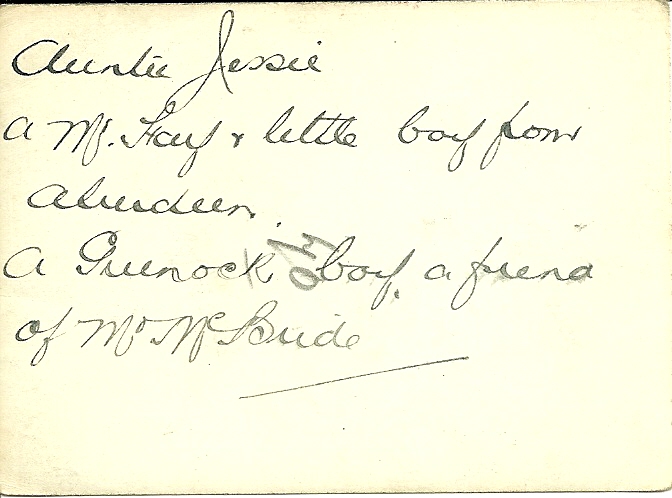 Auntie Jessie
a Mr. Hay & little boy from
Aberdeen.
A Greenock boy, a friend
of Mr McBride